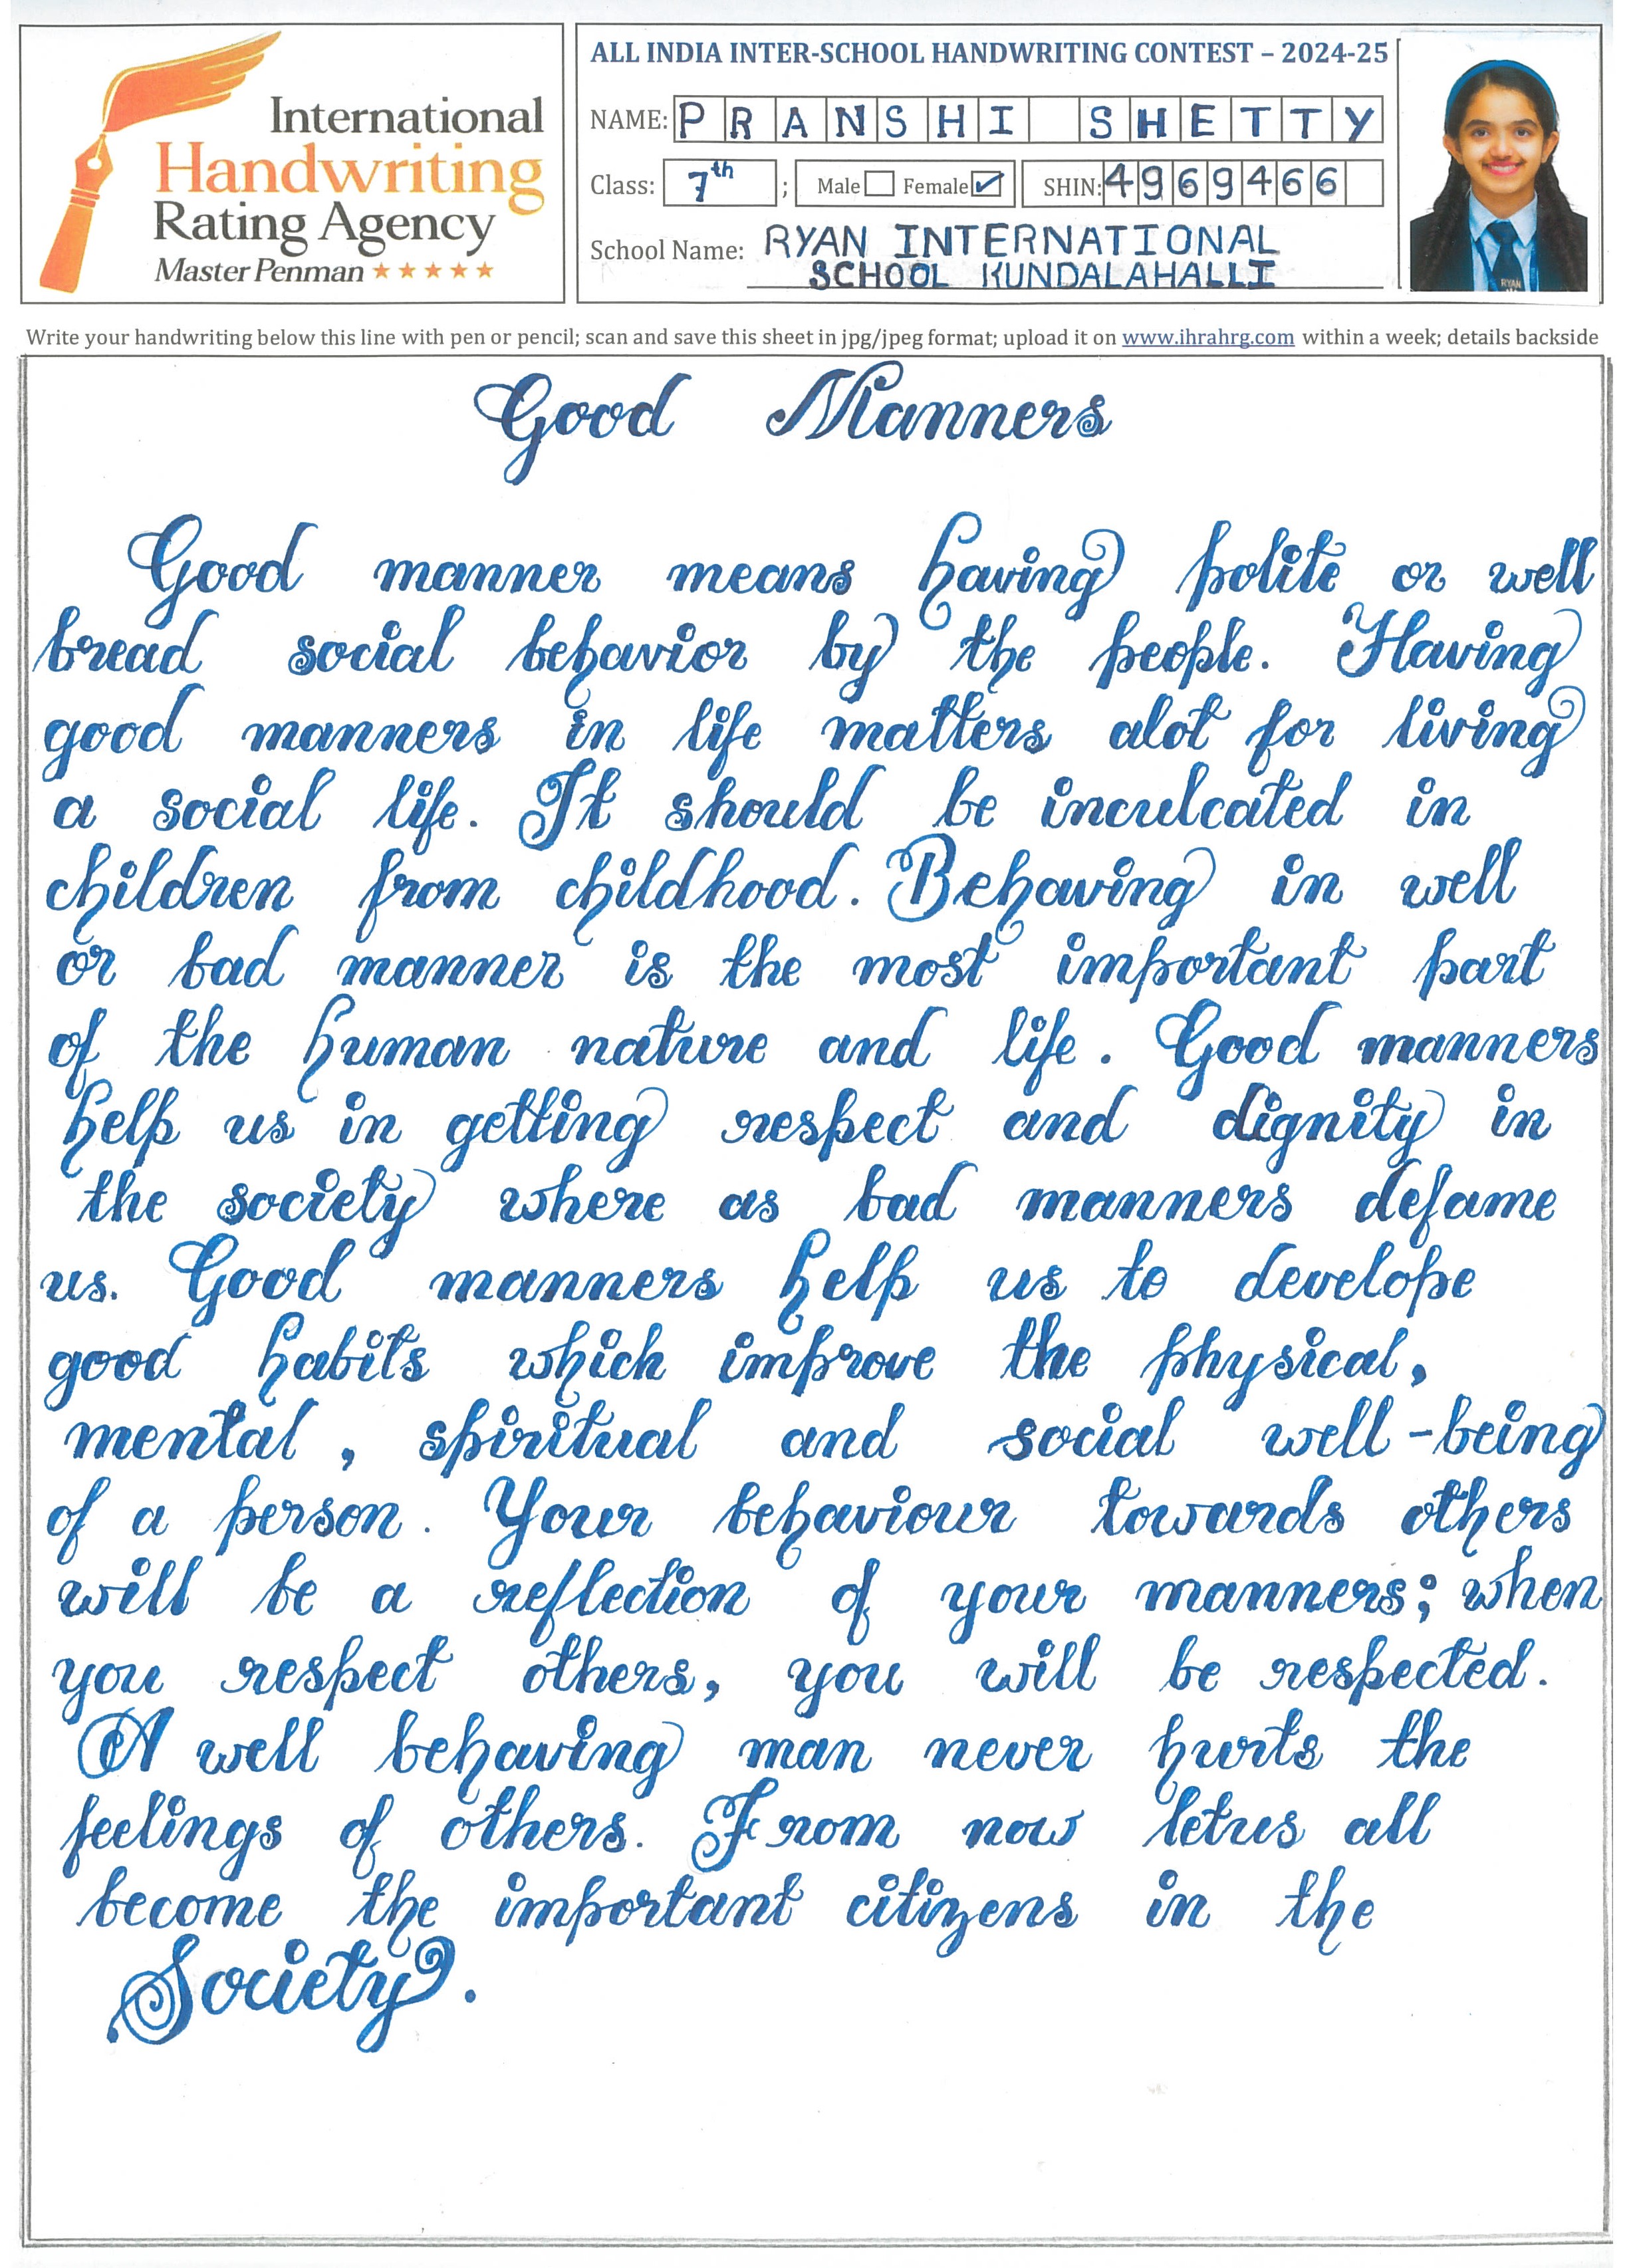 International
Handwriting
Rating Agency
Master Penman ★★★★★
ALL INDIA INTER-SCHOOL HANDWRITING CONTEST – 2024-25
NAME: PRANSHI SHETTY
Class: 7th ; Male Female ✓ SHIN: 4969466
School Name: RYAN INTERNATIONAL
SCHOOL KUNDALAHALLI
RYAN
Write your handwriting below this line with pen or pencil; scan and save this sheet in jpg/jpeg format; upload it on www.ihrahrg.com within a week; details backside
Good Manners
Good manner means having polite or well
bread social behavior by the people. Having
good manners in life matters alot for living
a social life. It should be inculcated in
children from childhood. Behaving in well
or bad manner is the most important part
of the human nature and life. Good manners
help us in getting respect and dignity in
the society where as bad manners defame
us. Good manners help us to develope
good habits which improve the physical,
mental, spiritual and social well-being
of a person. Your behaviour towards others
will be a reflection of your manners; when
you respect others, you will be respected.
A well behaving man never hurts the
feelings of others. From now letus all
become the important citizens in the
Society.